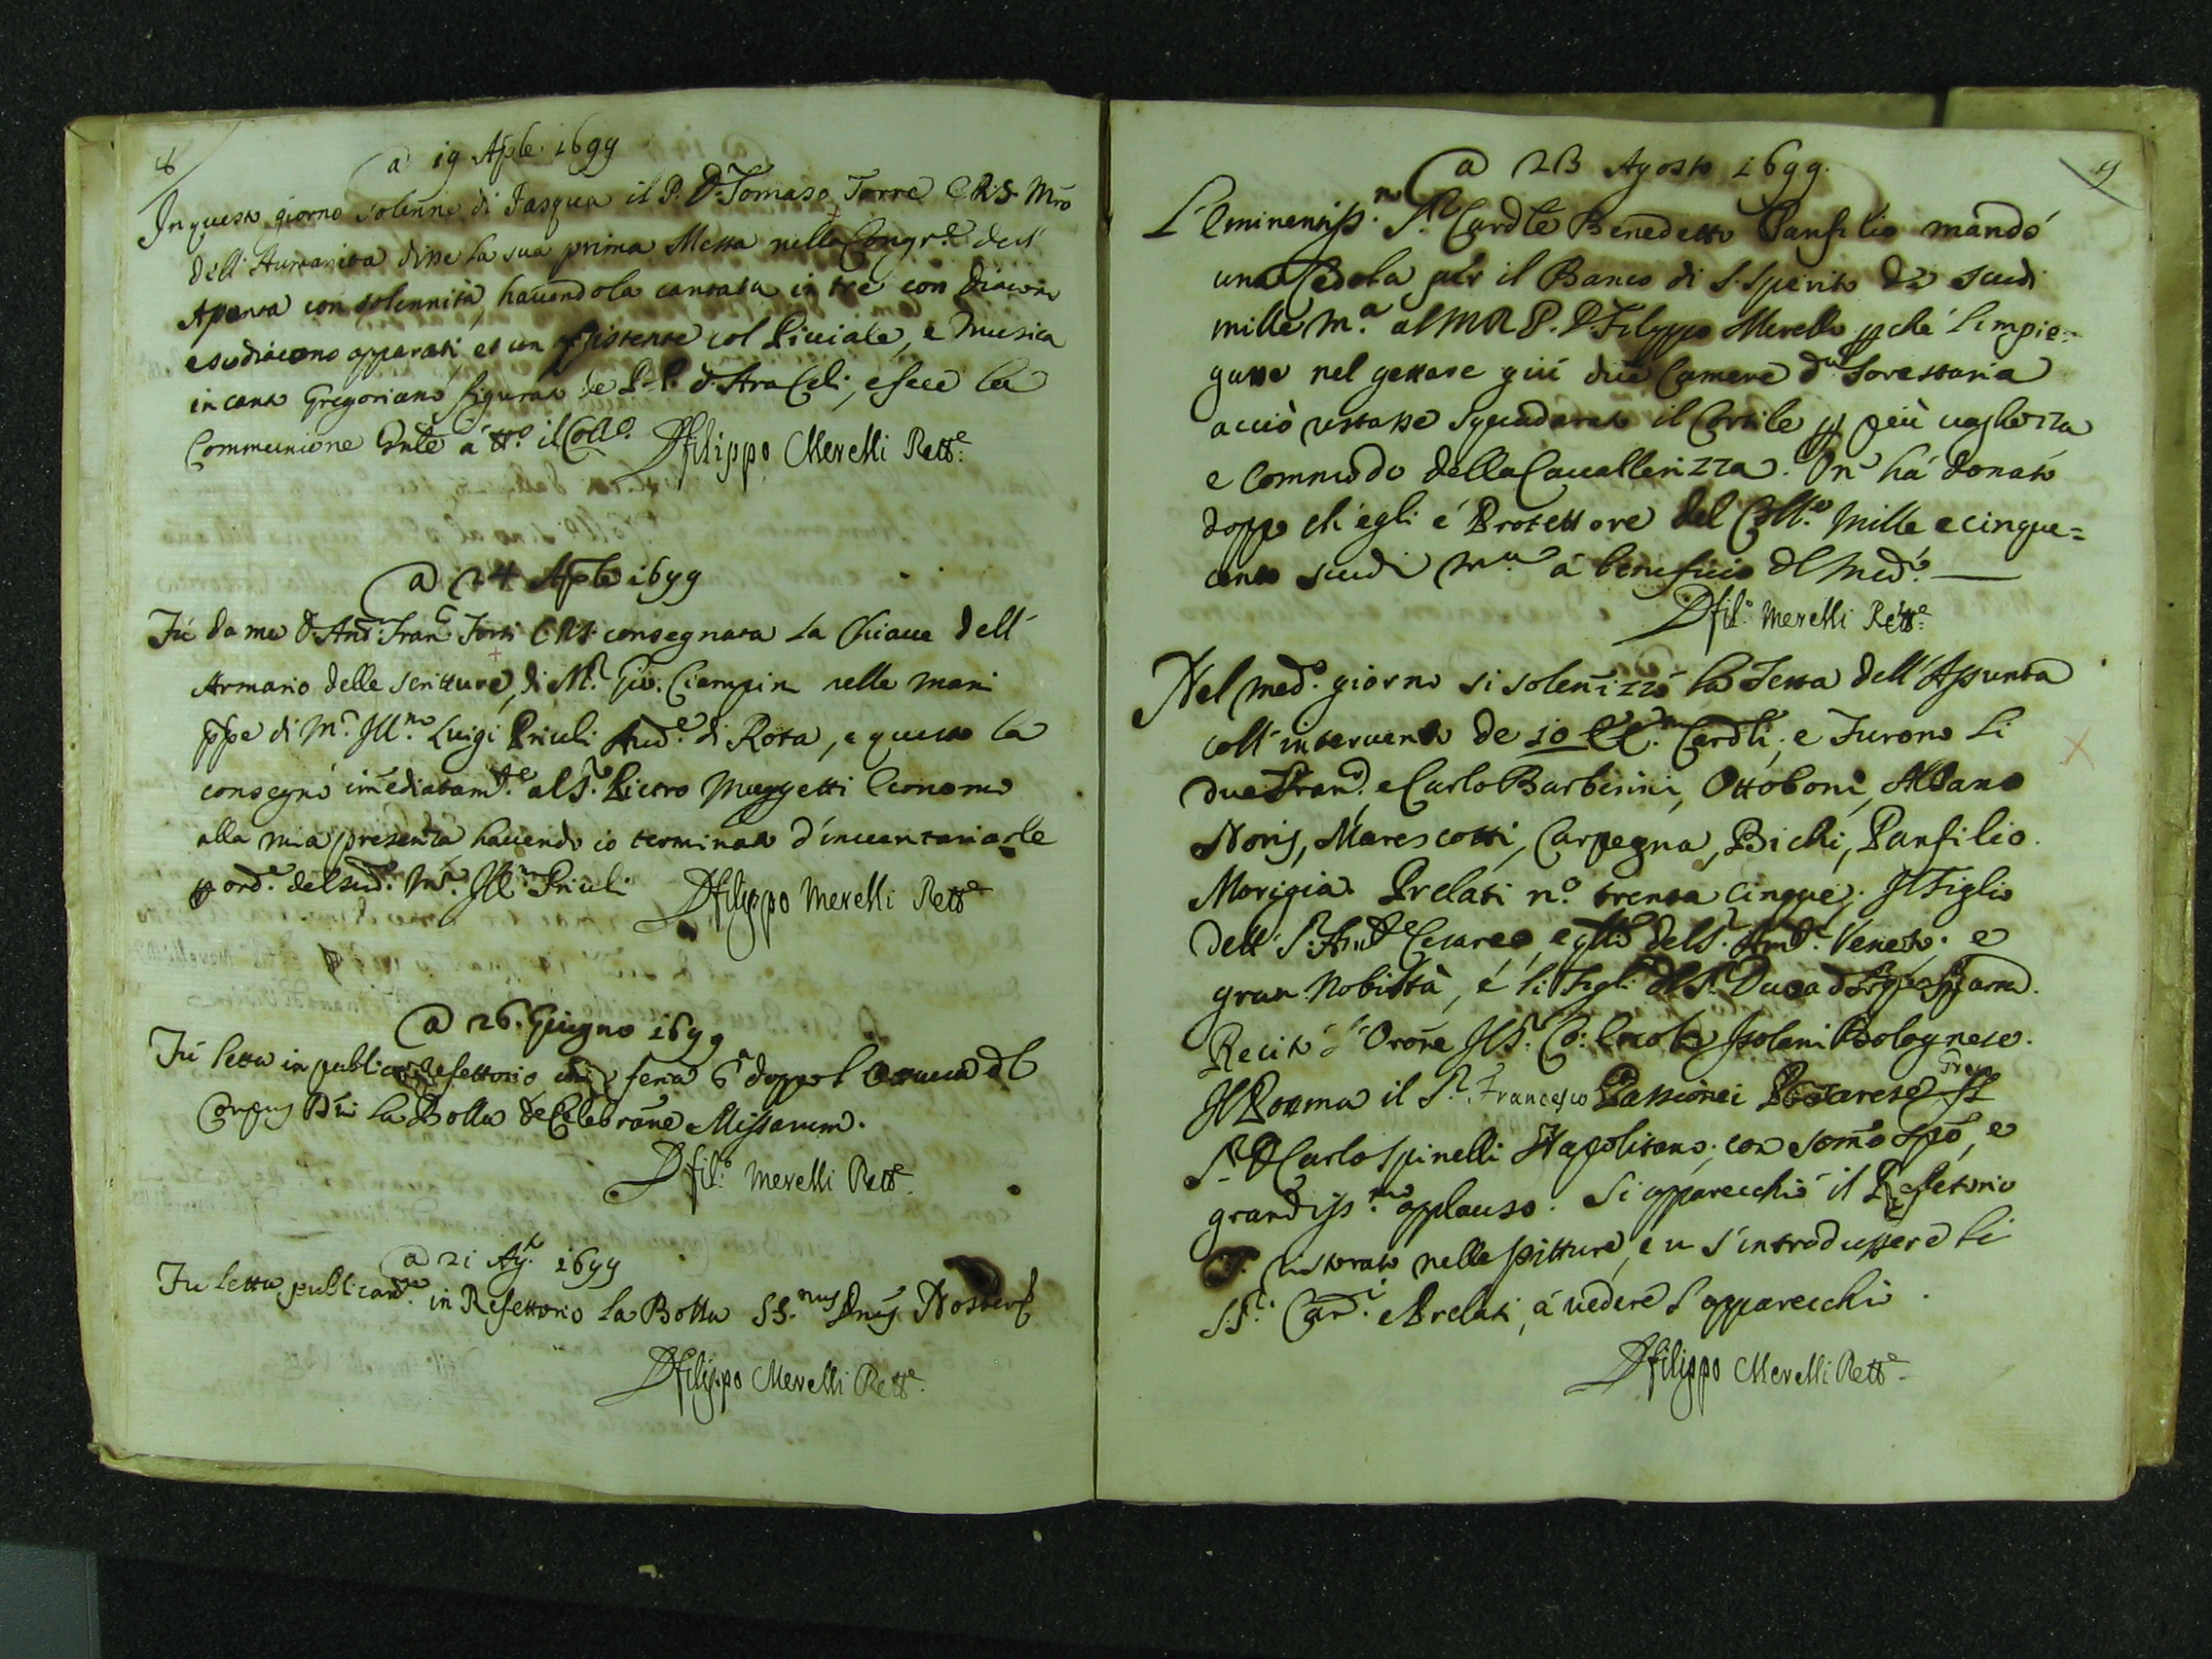 8
a 19 Aple. 1699
In questo giorno solenne di Pasqua il P. D. Tomaso Torre C.R.S. Mro
dell' Humanita disse la sua prima Messa nella Congr.e dell'
Apunta con solennità, hauendola cantata in tre con Diacono
e sudiacono apparati et un assistente col Piuiale, e musica
in canto Gregoriano figurato de P.P. d'Ara Celi, e fece la
Communione Gnle á tt.o il Coll.o D filippo Merelli Rett.e
a 24 Aple 1699
Fú da me D. And. Fran.c Torti C.R.S. consegnata la Chiaue dell'
Armario delle scritture, di M.r Gio: Ciempin nelle mani
ppe di M.r Ill.mo Luigi Priuli Aud.e di Rota, e questo la
consegnó imediatam.te al S.r Pietro Maggetti Economo
alla mia presenza hauendo io terminato d'inuentariarle
ord.e del sud.o M.r Ill.mo Priuli D filippo Merelli Rett.e
a 26. Giugno 1699
Fú letta in publico Refettorio feria 6.a doppo l' Ottaua dl
Corpus Dni la Bolla de Celebrane Missarum.
D fil.o Merelli Rett.e
a 21 Ag.to 1699
Fu letta publicam.te in Refettorio la Bolla SS.mus Dnus Noster
D filippo Merelli Rett.e
9
a 23 Agosto 1699.
L'Eminentiss.mo S.r Cardle Benedetto Panfilio mandó
una Cedola per il Banco di S. Spirito di scudi
mille m.a al M.R.P. D. Filippo Merello pché l'impie:
gasse nel gettare giú due Camere d.a Forestaria
acciò restasse squadrato il Cortile p più uaghezza
e commodo della Cauallerizza. On ha donato
doppo ch'egli é Protettore del Coll.o mille e cinque=
cento scudi m.a á beneficio dl med.o
D fil.o Merelli Rett.e
Nel med.o giorno si solenizzó la Festa dell' Assunta
coll'interuento de 10 EE.mi Cardli, e furono li
due Fran.co e Carlo Barberini, Ottoboni, Albano
Noris, Marescotti, Carpegna, Bichi, Panfilio.
Morigia. Prelati n.o trenta cinque; Il Figlio
dell' S.r Amb.e Cesareo, e qllo del S.r Amb.r Veneto. e
gran Nobiltà, é li figli dl S.r Duca
Recitó l'Orone Il S.r Co: Ercole Isolani Bolognese.
Il Poema il S.r Francesco Passionei
S.r D Carlo Spinelli Napolitano; con somo e
grandiss.mo applauso. Si apparecchió il Refetorio
ristorato nelle pitture, é u s'introdussero li
SS.ri Card.i e Prelati, á uedere l'apparecchio.
D filippo Merelli Rett.e